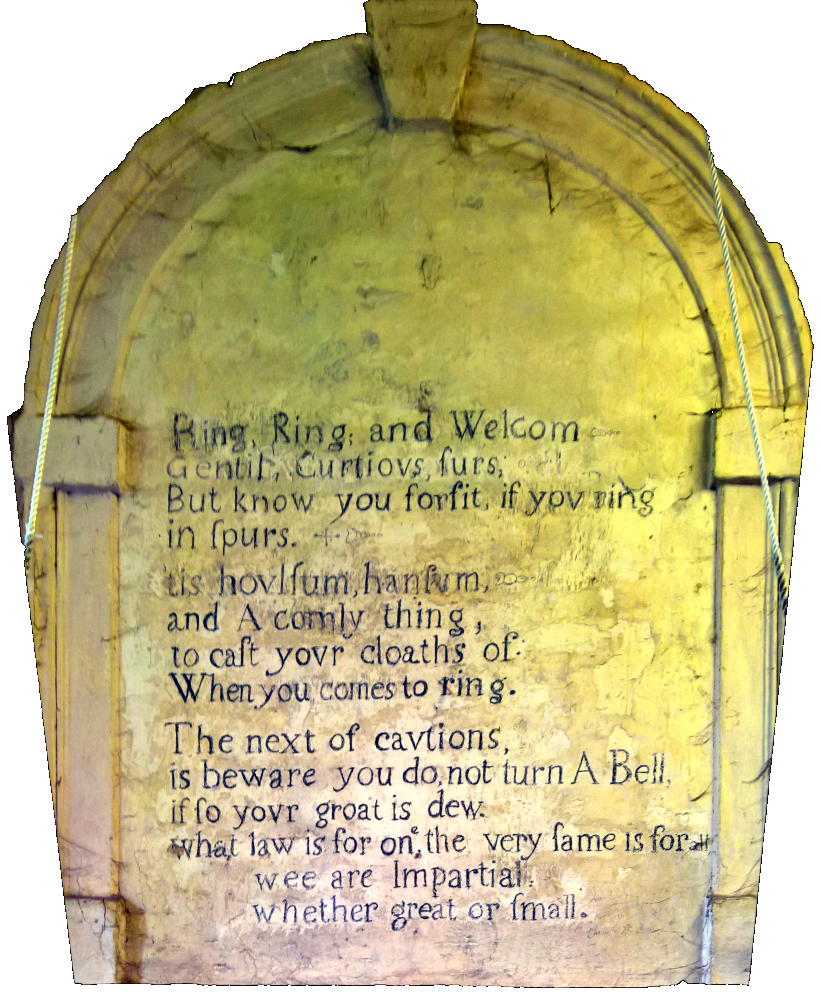 Ring, Ring; and Welcom
Gentill, Curtiovs, ſurs,
But know you forfit, if yov ring
in ſpurs.
tis hovlſum, hanſum,
and A comly thing,
to caſt yovr cloaths of
When you comes to ring.
The next of cavtions,
is beware you do, not turn A Bell,
if ſo yovr groat is dew.
what law is for one, the very ſame is for all
wee are Impartial,
whether great or ſmall.